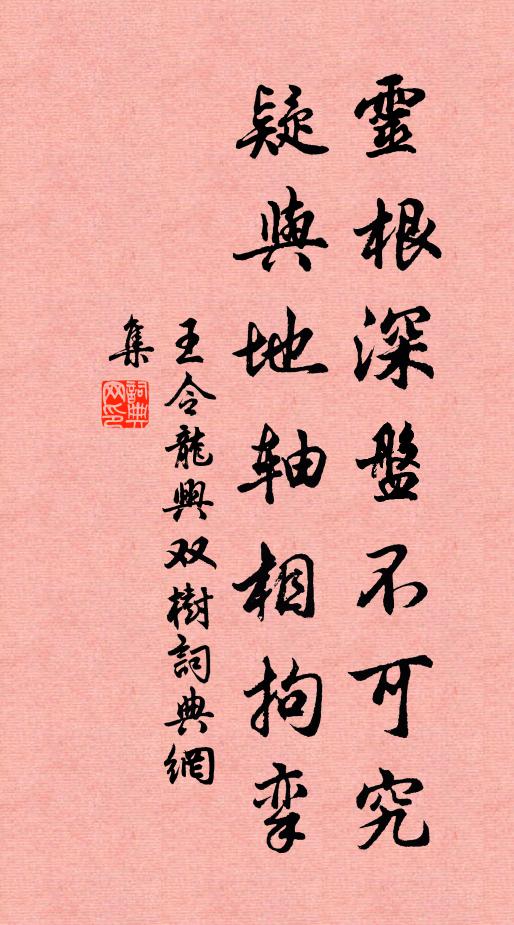 靈根深盤不可究
疑與地轴相拘挛
王令龍興双樹詞典網
集
詞典网印